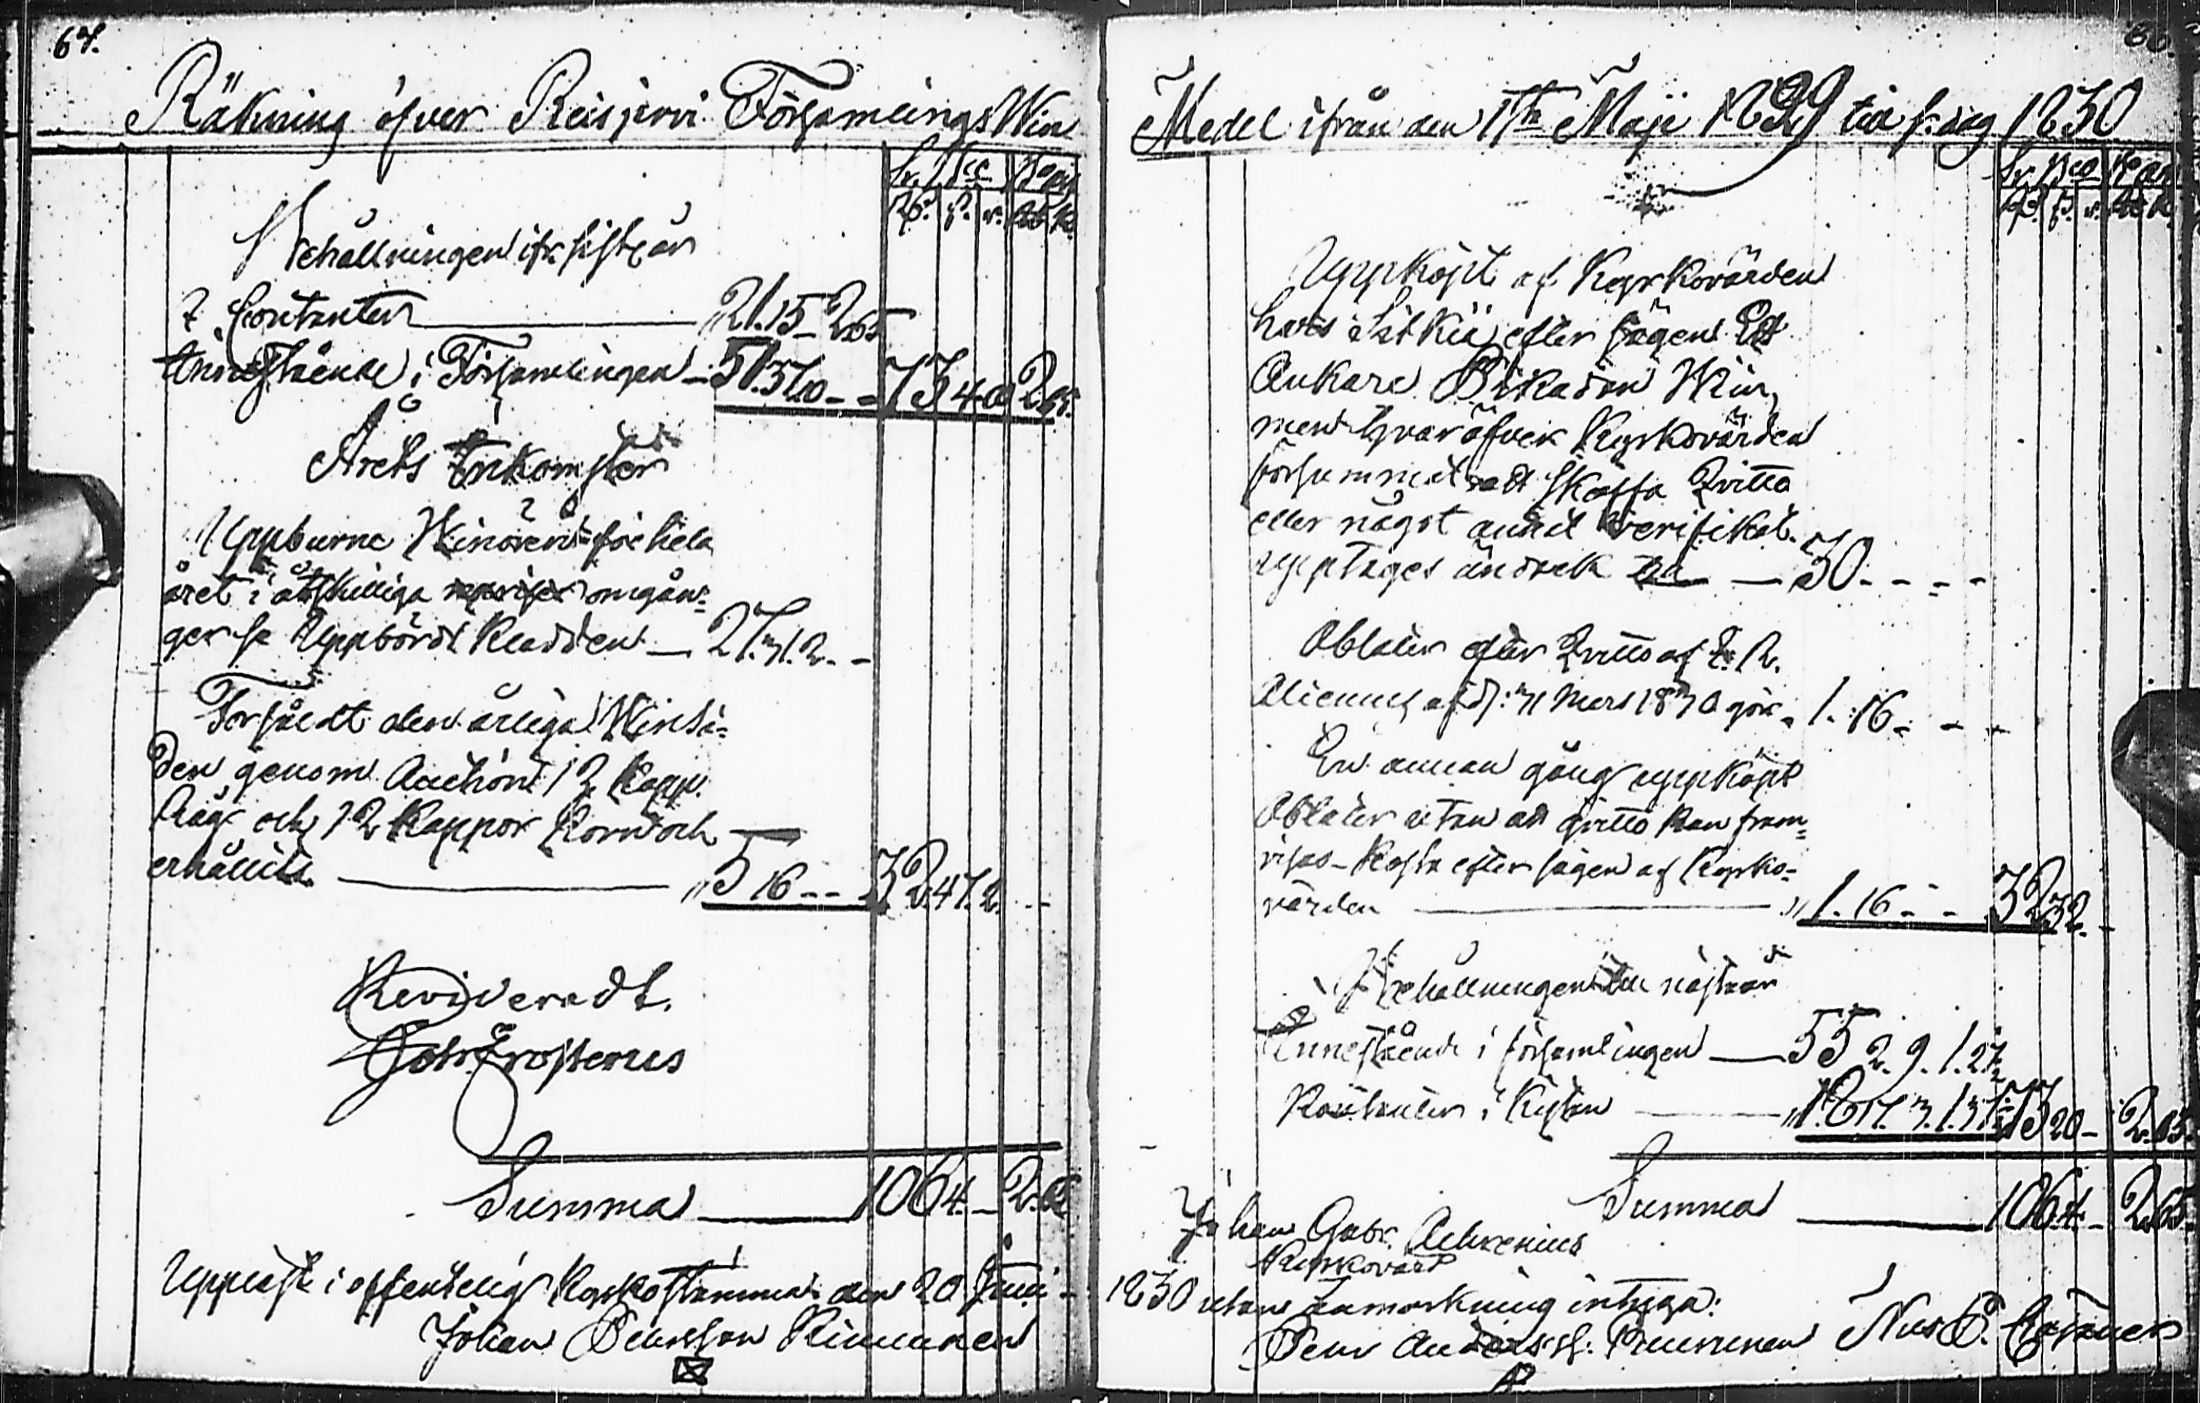 67.
Räkning öfver Reisjervi Församlings Win
Sv. Bco Ko pn
Rd. s. r. Rb K.
Behållningen ifr. sistl. år
Contanter 21. 15 - 2.65
Innestående i Församlingen - 51. 37. 10 - - 73 4 - 10 2.65.
Årets Inkomster
Uppburne Winören för hela
året i åtskilliga repriser omgån=
ger se Uppbörds Kladden - 27. 31. 2. - -
Försåldt den årliga Winsä=
den genom Auction 12 Kapp.
Råg och 12 Kappor Korn och
erhållit " 5 16 - - 32. 47. 2. - -
Revideradt.
Gabr. Frosterus
Summa 106 4. - 2.65
Uppläst i offentelig Kyrkostämma den 20 Junii
Johan Pehrsson Kinnunen
Medel ifrån den 1sta Maji 1829 till s. dag 1830
Sv. Bco Ko pn
Rd. s. r. Rb K.
Uppköpt af Kyrkovärden
Lars Sitkiä efter sägen Ett
Ankare Pikadon Win,
men hvaröfver Kyrkovärden
försummat att skaffa Qvitto
eller något annat verifikat.
upptages ändock 30. - - - -
Oblater efter Qvitto af
af d: 31 Mars 1830 gör - 1. 16. - - -
En annan gång uppköpt
Oblater utan att qvitto kan fram=
visas - Kosta efter sägen af Kyrko=
värden " 1. 16 - - 32 32. -
Behållningen till nästa år
Innestående i församlingen 55 2. 9. 1. 27½
Contanter i Kistan " 18 17. 3. 1. 37½ 73 20 - 2.65.
Summa 106 4. - 2.65.
Johan Gabr. Achrenius
Kyrkovärd
1830 utan Anmärkning intyga:
Pehr Anderss. Kinnunen Nils P.